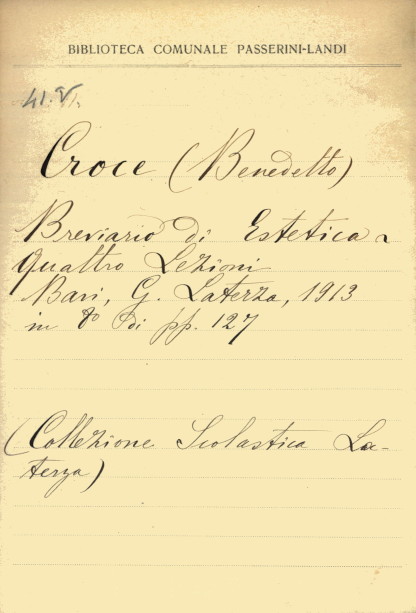 BIBLIOTECA COMUNALE PASSERINI-LANDI
41.V.
Croce (Benedetto)
Breviario di Estetica
Quattro Lezioni
Bari, G. Laterza, 1913
in 8º di pp. 127
(Collezione Scolastica La-
terza)